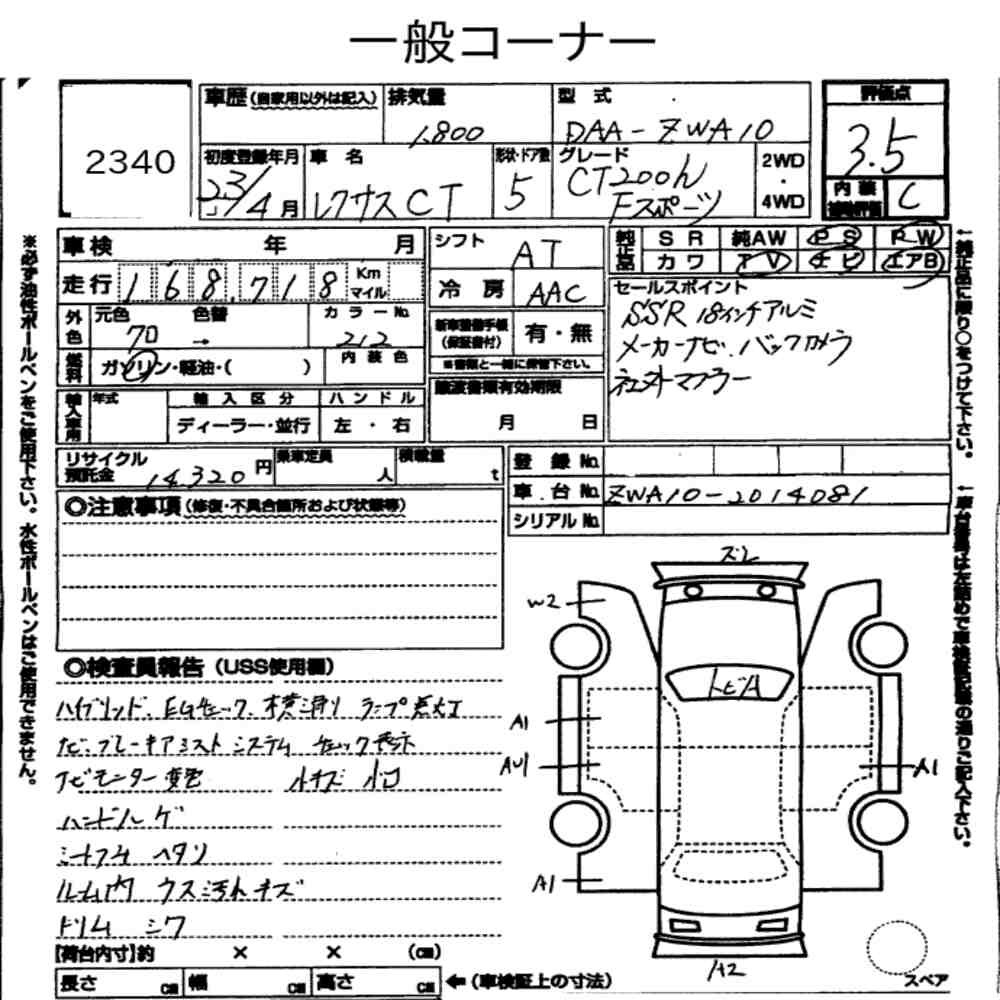 一般コーナー
2340
車歴(自家用以外は記入) 排気量 型式
1,800 DAA-ZWA10
初度登録年月 車名 形状・ドア数 グレード 2WD・4WD
23/4月 レクサスCT 5 CT200h Fスポーツ
評価点
3.5
内装 補助評価 C
車検 年 月
走行 168,718 Km マイル
シフト AT
冷房 AAC
純正品 SR 純AW PS PW
カワ TV ナビ エアB
外色 元色 色替 カラーNo.
70 → 212
燃料 ガソリン・軽油・( ) 内装色
新車整備手帳(保証書付) 有・無
※書類と一緒に保管下さい。
セールスポイント
SSR 18インチアルミ
メーカーナビ.バックカメラ
社外マフラー
輸入車用 年式 輸入区分 ハンドル
ディーラー・並行 左・右
譲渡書類有効期限
月 日
リサイクル預託金 14,320円 乗車定員 人 積載量 t
登録No.
車台No. ZWA10-2014081
シリアルNo.
◎注意事項(修復・不具合箇所および状態等)
◎検査員報告(USS使用欄)
ハイブリッド、EGチェック、横滑り ランプ点灯
ナビ、ブレーキアシストシステム チェック表示
ナビモニター変色 小キズ 凹
ハンドルゲ
シートフチ ヘタリ
ルーム内 ウス汚れキズ
トリム シワ
ズレ
W2
トビA
A1
AU1
A1
A1
A2
スペア
【荷台内寸】約 × × (cm)
長さ cm 幅 cm 高さ cm ←(車検証上の寸法)
※必ず油性ボールペンをご使用下さい。水性ボールペンはご使用できません。
←純正品に限り○をつけて下さい。
←車台番号は左詰めで車検証記載の通りご記入下さい。